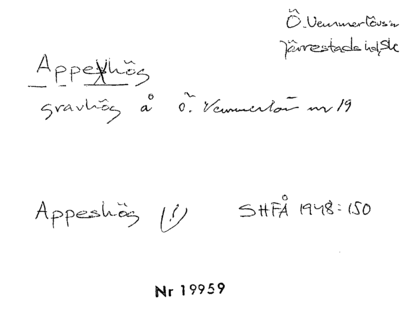 Ö. Vemmerlövs sn
Järrestads hd, Sk
Appeshög
gravhög å Ö. Vemmerlöv nr 19
Appeshög (!) SHFÅ 1948:150
Nr 19959